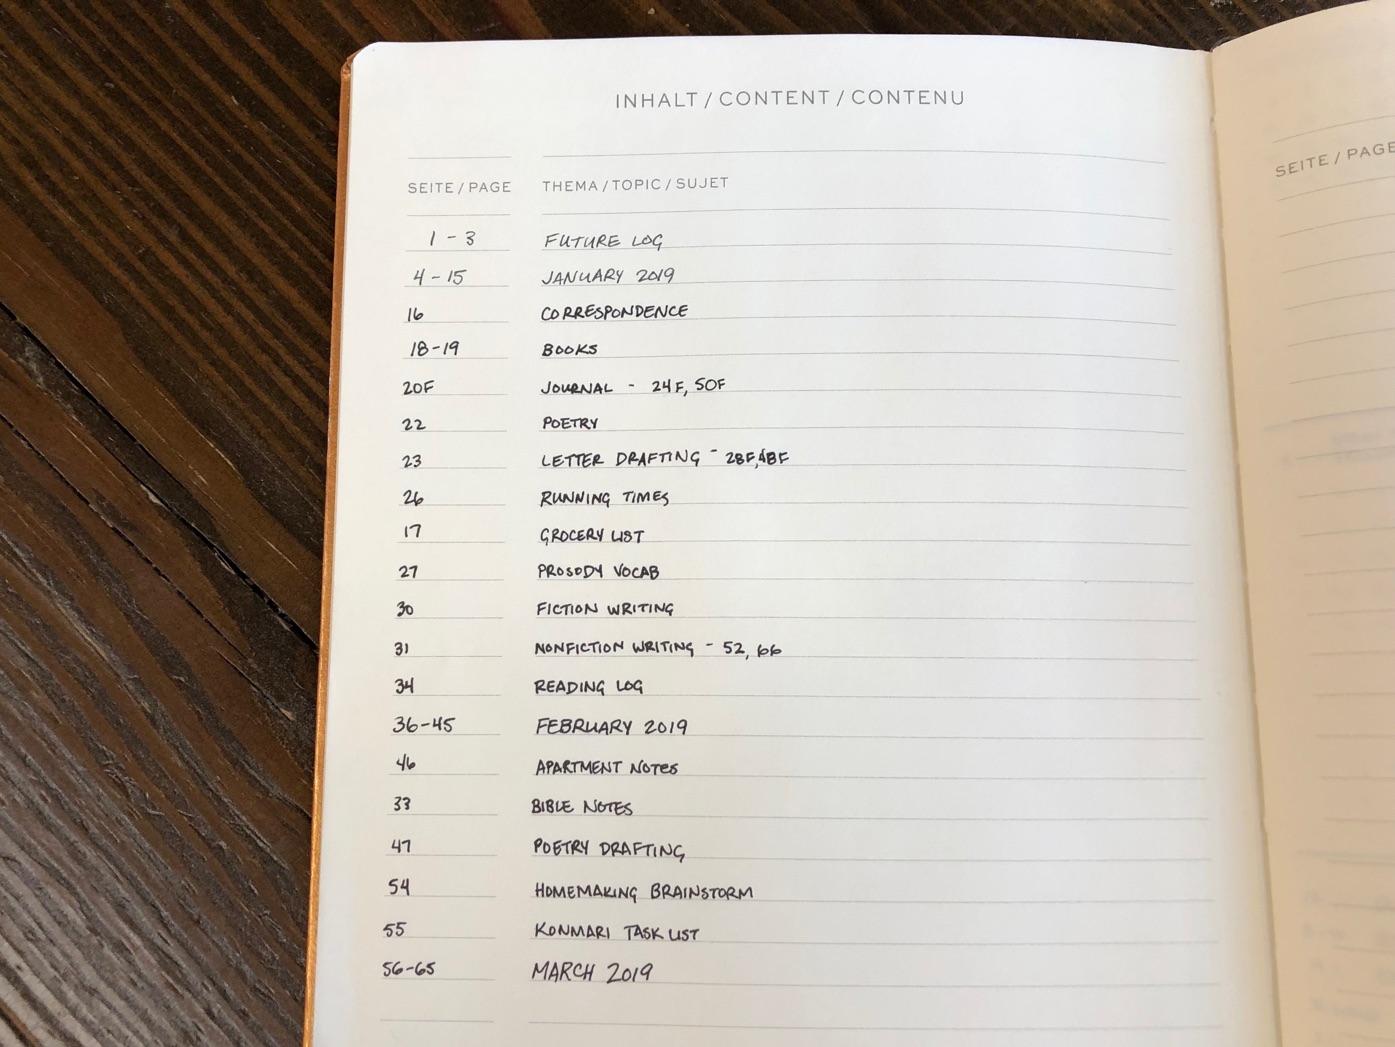 INHALT / CONTENT / CONTENU
SEITE / PAGE THEMA / TOPIC / SUJET
1 - 3 FUTURE LOG
4 - 15 JANUARY 2019
16 CORRESPONDENCE
18-19 BOOKS
20F JOURNAL - 24F, 50F
22 POETRY
23 LETTER DRAFTING - 28F, 48F
26 RUNNING TIMES
17 GROCERY LIST
27 PROSODY VOCAB
30 FICTION WRITING
31 NONFICTION WRITING - 52, 66
34 READING LOG
36-45 FEBRUARY 2019
46 APARTMENT NOTES
33 BIBLE NOTES
47 POETRY DRAFTING
54 HOMEMAKING BRAINSTORM
55 KONMARI TASK LIST
56-65 MARCH 2019
SEITE / PAGE